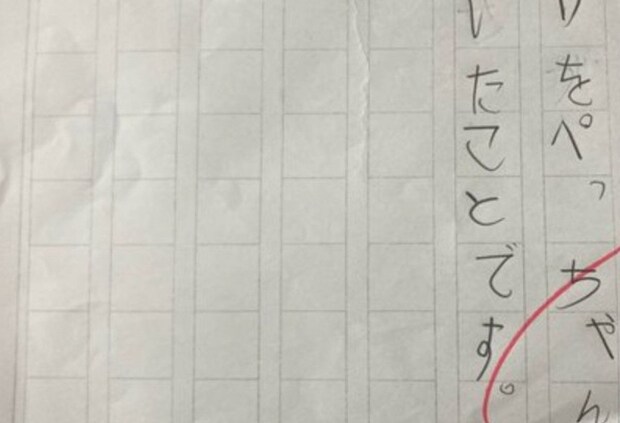 りをぺっちゃん
いたことです。